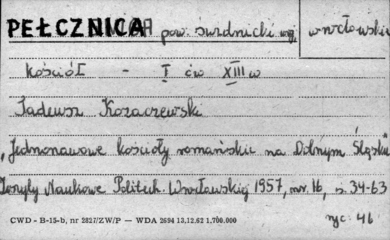 PEŁCZNICA pow. świdnicki woj. wrocławskie
kościół - I ćw XIII w
Tadeusz Kozaczewski
"Jednonawowe kościoły romańskie na Dolnym Śląsku
Zeszyty Naukowe Politech. Wrocławskiej 1957, nr. 16, s. 34-63
CWD - B-15-b, nr 2827/ZW/P — WDA 2694 13.12.62 1,700.000
ryc. 46